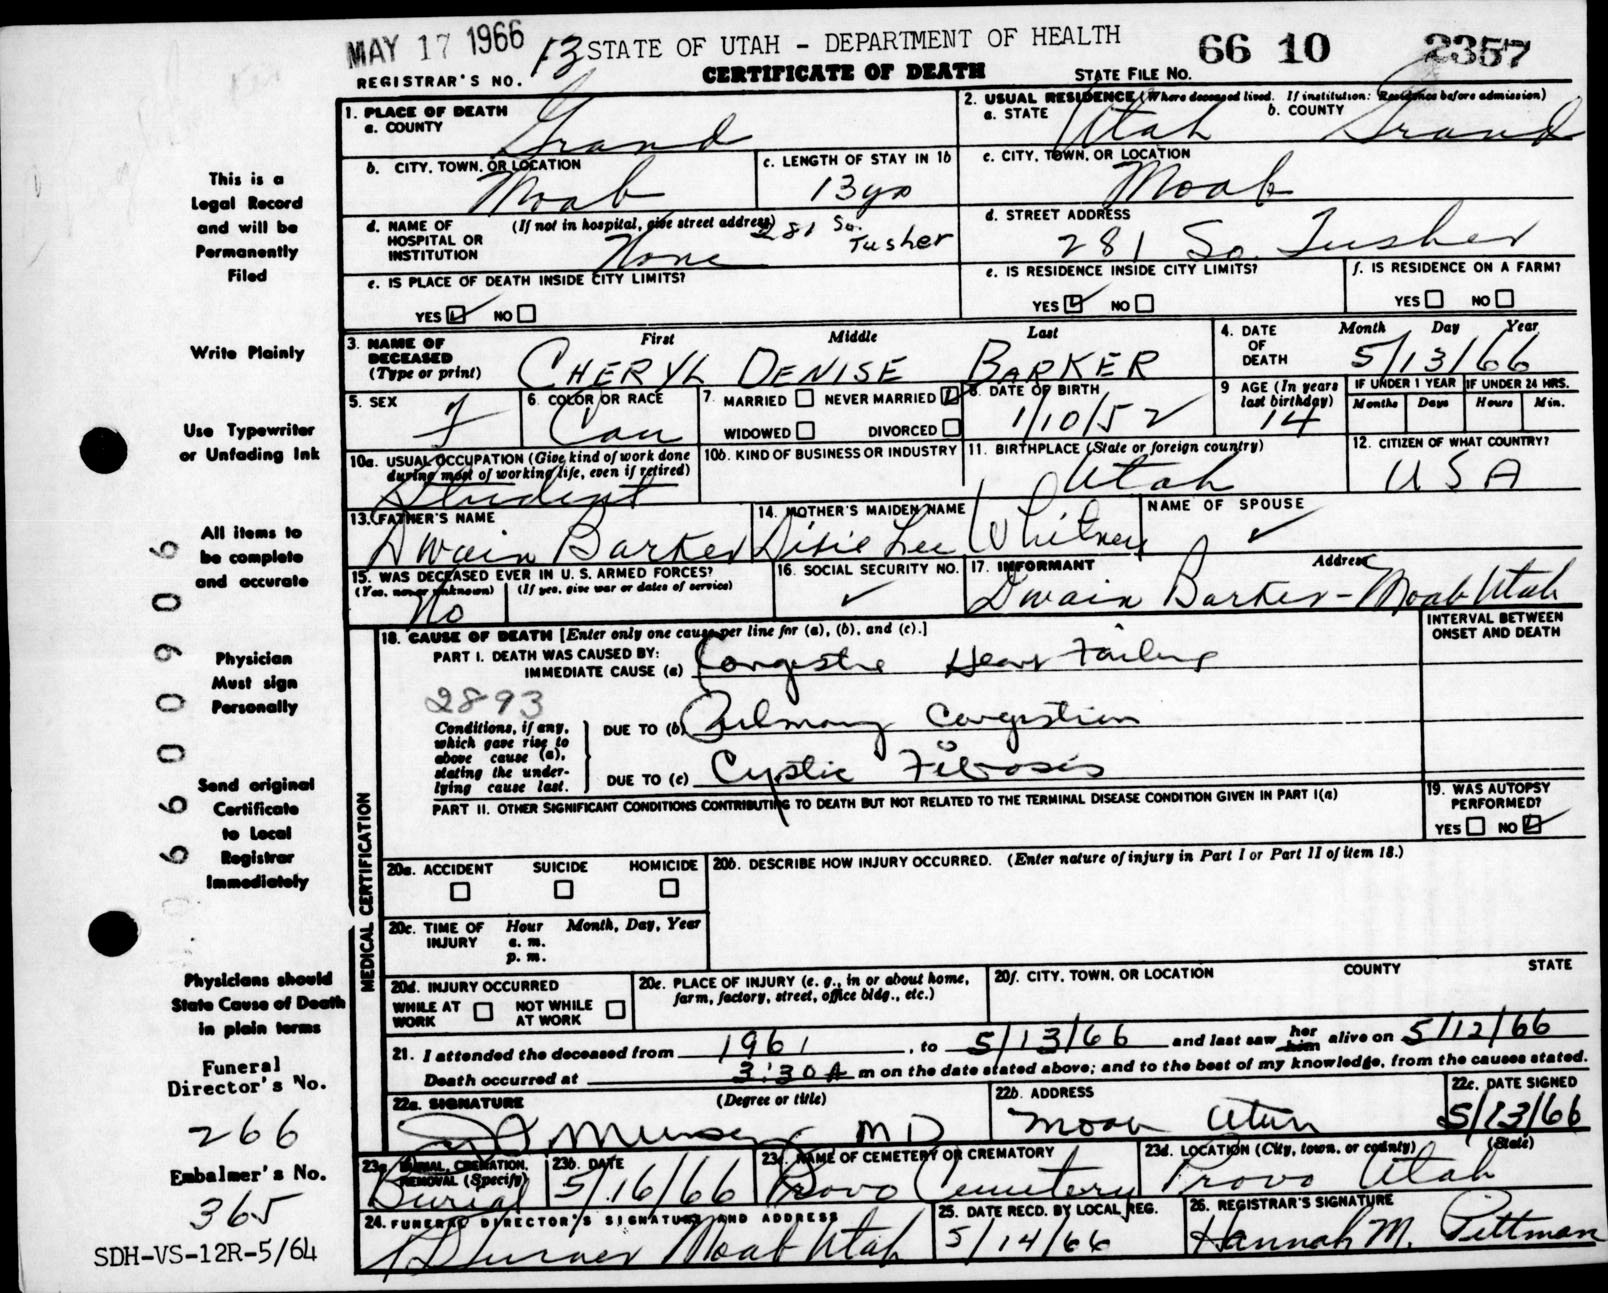 MAY 17 1966 13 STATE OF UTAH - DEPARTMENT OF HEALTH 66 10 2357
REGISTRAR'S NO. CERTIFICATE OF DEATH STATE FILE NO.
1. PLACE OF DEATH
a. COUNTY Grand
2. USUAL RESIDENCE (Where deceased lived. If institution: Residence before admission)
a. STATE Utah b. COUNTY Grand
b. CITY, TOWN, OR LOCATION Moab
c. LENGTH OF STAY IN 1b 13 yrs
c. CITY, TOWN, OR LOCATION Moab
d. NAME OF HOSPITAL OR INSTITUTION (If not in hospital, give street address) None 281 So. Tusher
d. STREET ADDRESS 281 So. Tusher
e. IS PLACE OF DEATH INSIDE CITY LIMITS?
YES ☑ NO ☐
e. IS RESIDENCE INSIDE CITY LIMITS?
YES ☑ NO ☐
f. IS RESIDENCE ON A FARM?
YES ☐ NO ☐
3. NAME OF DECEASED (Type or print) First Middle Last
CHERYL DENISE BARKER
4. DATE OF DEATH Month Day Year
5/13/66
5. SEX F
6. COLOR OR RACE Cau
7. MARRIED ☐ NEVER MARRIED ☑
WIDOWED ☐ DIVORCED ☐
8. DATE OF BIRTH 1/10/52
9 AGE (In years last birthday) 14
IF UNDER 1 YEAR Months Days
IF UNDER 24 HRS. Hours Min.
10a. USUAL OCCUPATION (Give kind of work done during most of working life, even if retired)
Student
10b. KIND OF BUSINESS OR INDUSTRY
11. BIRTHPLACE (State or foreign country)
Utah
12. CITIZEN OF WHAT COUNTRY?
USA
13. FATHER'S NAME
Dwain Barker
14. MOTHER'S MAIDEN NAME
Dixie Lee Whitney
NAME OF SPOUSE
✓
15. WAS DECEASED EVER IN U. S. ARMED FORCES?
(Yes, no, or unknown) (If yes, give war or dates of service)
No
16. SOCIAL SECURITY NO.
✓
17. INFORMANT Address
Dwain Barker - Moab Utah
MEDICAL CERTIFICATION
18. CAUSE OF DEATH [Enter only one cause per line for (a), (b), and (c).]
INTERVAL BETWEEN ONSET AND DEATH
PART I. DEATH WAS CAUSED BY:
IMMEDIATE CAUSE (a) Congestive Heart Failure
2893
Conditions, if any, which gave rise to above cause (a), stating the underlying cause last.
DUE TO (b) Pulmonary Congestion
DUE TO (c) Cystic Fibrosis
PART II. OTHER SIGNIFICANT CONDITIONS CONTRIBUTING TO DEATH BUT NOT RELATED TO THE TERMINAL DISEASE CONDITION GIVEN IN PART I(a)
19. WAS AUTOPSY PERFORMED?
YES ☐ NO ☑
20a. ACCIDENT SUICIDE HOMICIDE
☐ ☐ ☐
20b. DESCRIBE HOW INJURY OCCURRED. (Enter nature of injury in Part I or Part II of item 18.)
20c. TIME OF INJURY Hour Month, Day, Year
a. m.
p. m.
20d. INJURY OCCURRED
WHILE AT WORK ☐ NOT WHILE AT WORK ☐
20e. PLACE OF INJURY (e. g., in or about home, farm, factory, street, office bldg., etc.)
20f. CITY, TOWN, OR LOCATION COUNTY STATE
21. I attended the deceased from 1961, to 5/13/66 and last saw her him alive on 5/12/66
Death occurred at 3:30 A m on the date stated above; and to the best of my knowledge, from the causes stated.
22a. SIGNATURE (Degree or title)
Munsey MD
22b. ADDRESS
Moab Utah
22c. DATE SIGNED
5/13/66
23a. BURIAL, CREMATION, REMOVAL (Specify)
Burial
23b. DATE
5/16/66
23c. NAME OF CEMETERY OR CREMATORY
Provo Cemetery
23d. LOCATION (City, town, or county) (State)
Provo Utah
24. FUNERAL DIRECTOR'S SIGNATURE AND ADDRESS
Moab Utah
25. DATE RECD. BY LOCAL REG.
5/14/66
26. REGISTRAR'S SIGNATURE
Hannah M. Pittman
This is a
Legal Record
and will be
Permanently
Filed
Write Plainly
Use Typewriter
or Unfading Ink
All items to
be complete
and accurate
Physician
Must sign
Personally
Send original
Certificate
to Local
Registrar
Immediately
Physicians should
State Cause of Death
in plain terms
Funeral
Director's No.
266
Embalmer's No.
365
SDH-VS-12R-5/64